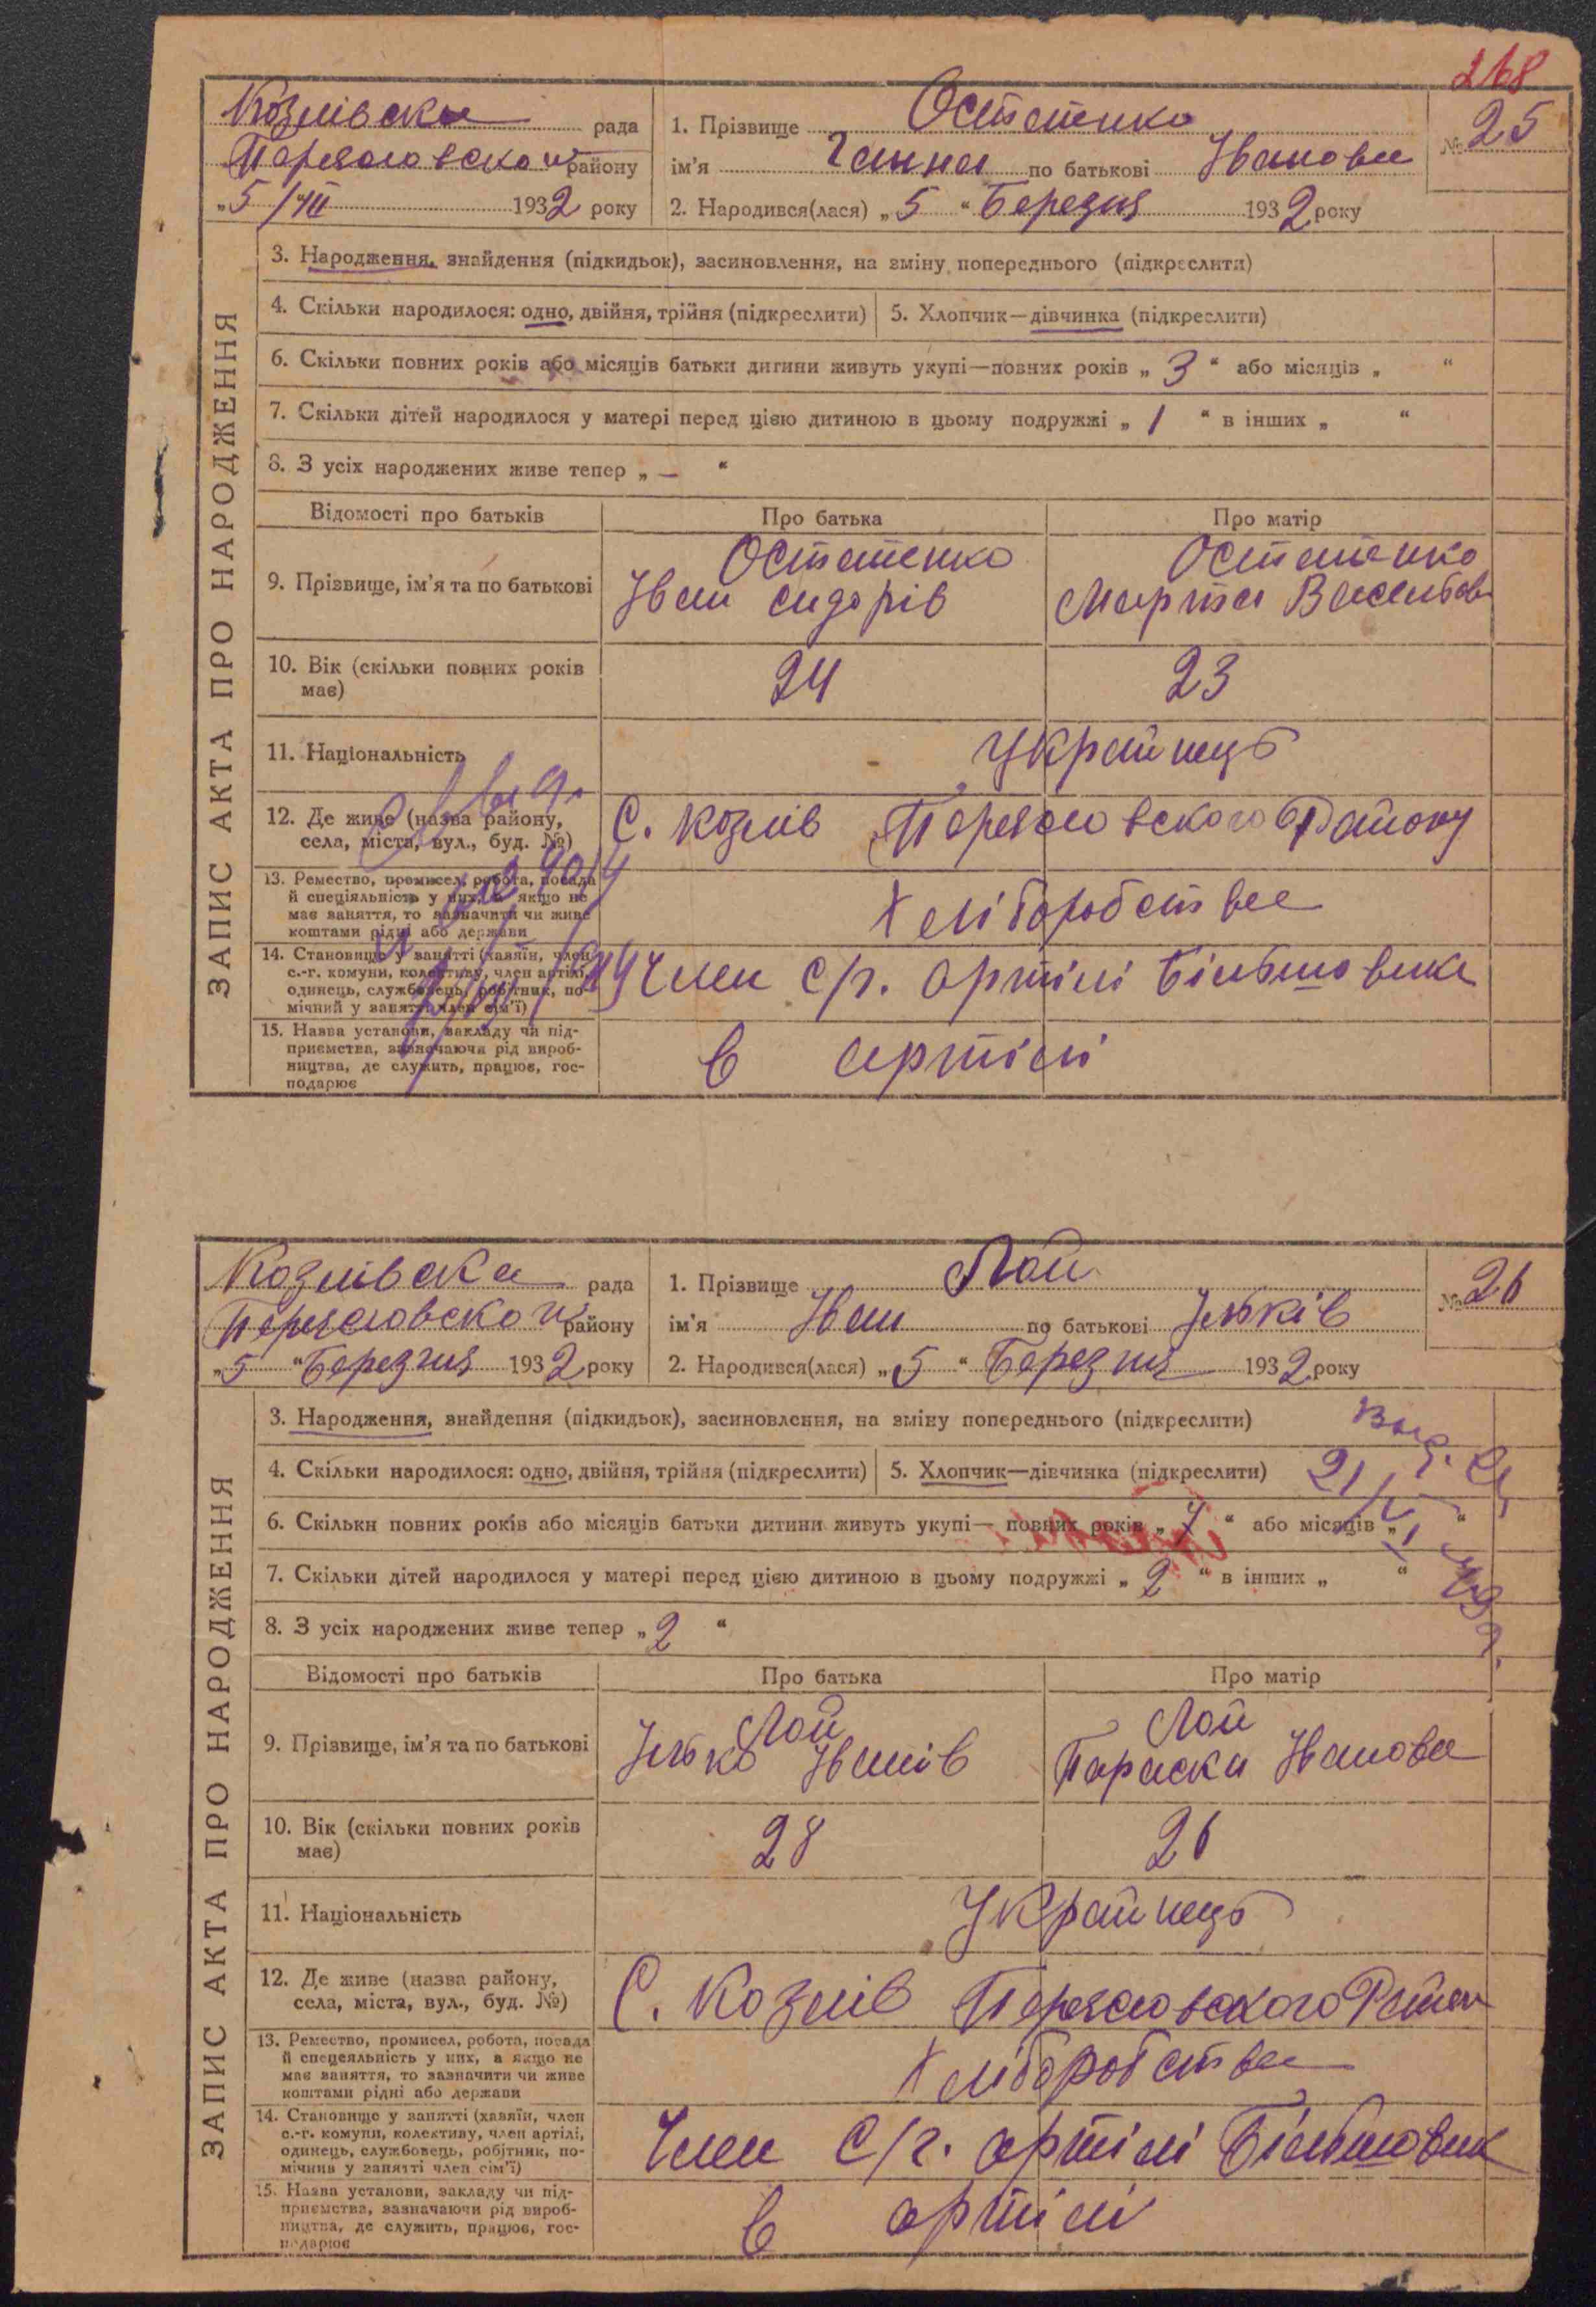 268
Козлівска рада
Переяславсько району
„5/VII 1932 року
1. Прізвище Остатенко
ім'я Ганна по батькові Іванова
2. Народився(лася) „5“ Березня 1932 року
№ 25
ЗАПИС АКТА ПРО НАРОДЖЕННЯ
3. Народження, знайдення (підкидьок), засиновлення, на зміну попереднього (підкреслити)
4. Скільки народилося: одно, двійня, трійня (підкреслити)
5. Хлопчик—дівчинка (підкреслити)
6. Скільки повних років або місяців батьки дитини живуть укупі—повних років „3“ або місяців „ “
7. Скільки дітей народилося у матері перед цією дитиною в цьому подружжі „1“ в інших „ “
8. З усіх народжених живе тепер „—“
Відомості про батьків
Про батька
Про матір
9. Прізвище, ім'я та по батькові
Остатенко
Іван Сидорів
Остатенко
Марта
10. Вік (скільки повних років
має)
24
23
11. Національність
Українець
12. Де живе (назва району,
села, міста, вул., буд. №)
С. Козлів Переясловського Району
13. Ремество, промисел, робота, посада
й спеціяльність у них, а якщо не
має заняття, то зазначити чи живе
коштами рідні або держави
Хліборобства
14. Становище у занятті (хазяїн, член
с.-г. комуни, колективу, член артілі,
одинець, службовець, робітник, по-
мічний у занятті член сім'ї)
Член с/г. артілі Більшовика
15. Назва установи, закладу чи під-
приємства, зазначаючи рід вироб-
ництва, де служить, працює, гос-
подарює
в артілі
Козлівска рада
Переясловсько району
„5“ Березня 1932 року
1. Прізвище Лой
ім'я Іван по батькові Ільків
2. Народився(лася) „5“ Березня 1932 року
№ 26
ЗАПИС АКТА ПРО НАРОДЖЕННЯ
3. Народження, знайдення (підкидьок), засиновлення, на зміну попереднього (підкреслити)
4. Скільки народилося: одно, двійня, трійня (підкреслити)
5. Хлопчик—дівчинка (підкреслити)
6. Скільки повних років або місяців батьки дитини живуть укупі— повних років „7“ або місяців „ “
7. Скільки дітей народилося у матері перед цією дитиною в цьому подружжі „2“ в інших „ “
8. З усіх народжених живе тепер „2“
Відомості про батьків
Про батька
Про матір
9. Прізвище, ім'я та по батькові
Лой
Ілько Іванів
Лой
Параска Іванова
10. Вік (скільки повних років
має)
28
26
11. Національність
Українець
12. Де живе (назва району,
села, міста, вул., буд. №)
С. Козлів Переясловського
13. Ремество, промисел, робота, посада
й спецеяльність у них, а якщо не
має заняття, то зазначити чи живе
коштами рідні або держави
Хліборобства
14. Становище у занятті (хазяїн, член
с.-г. комуни, колективу, член артілі,
одинець, службовець, робітник, по-
мічник у занятті член сім'ї)
Член с/г. артілі Більшовик
15. Назва установи, закладу чи під-
приємства, зазначаючи рід вироб-
ництва, де служить, працює, гос-
подарює
в артілі